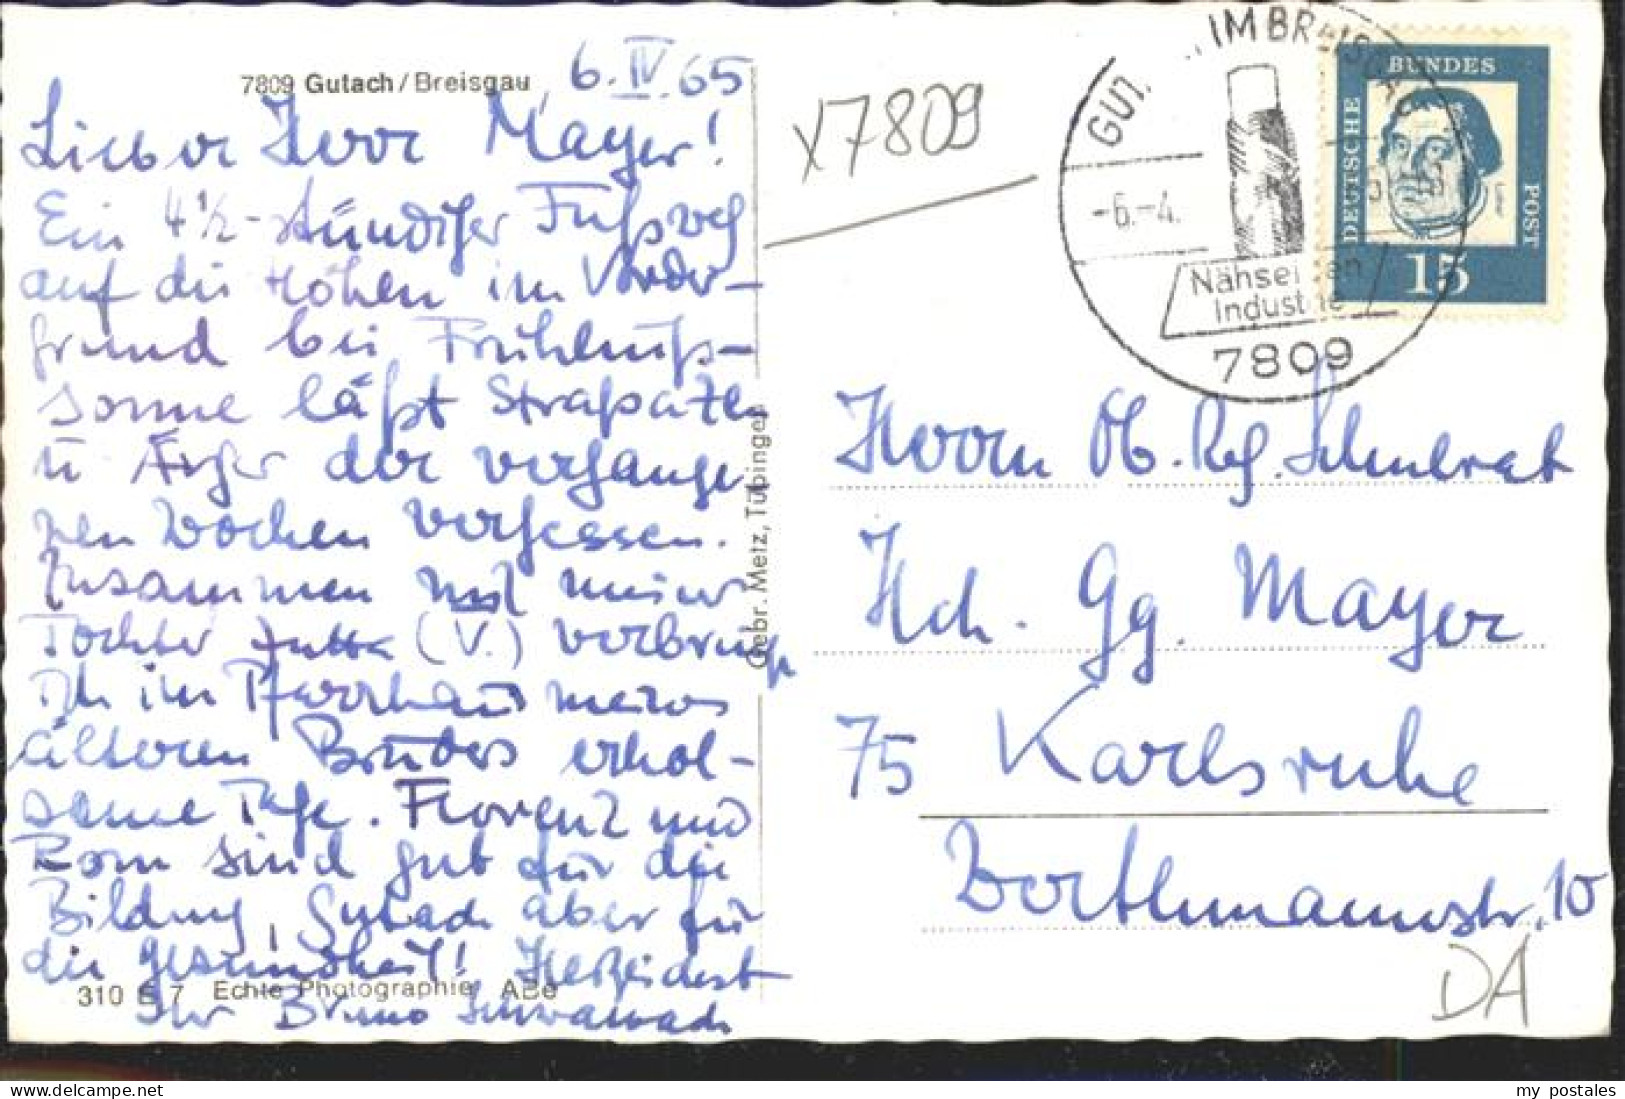 7809 Gutach / Breisgau, 6. IV. 65
Lieber Herr Mayer!
Ein 4 1/2-stündiger Fußweg
auf die Höhen im Vorder-
grund bei Frühlings-
sonne läßt Strapazen
u Ärger der vergange-
nen Wochen vergessen.
Zusammen mit meiner
Tochter Jutta (V.) verbringe
ich im Pfarrhaus meines
älteren Bruders erhol-
same Tage. Florenz und
Rom sind gut für die
Bildung, Gutach aber für
die Gesundheit! Herzlichst
Ihr Bruno Schwarzach
310 E 7 Echte Photographie ABe
Gebr. Metz, Tübingen
X7809
GUT IM BREISGAU
-6.-4.
Nähseiden
Industrie
7809
DEUTSCHE
BUNDES
POST
15
Herrn Ob. Reg. Schulrat
Hch. Gg. Mayer
75 Karlsruhe
Worthmannstr. 10
DA
my postales
delcampe.net